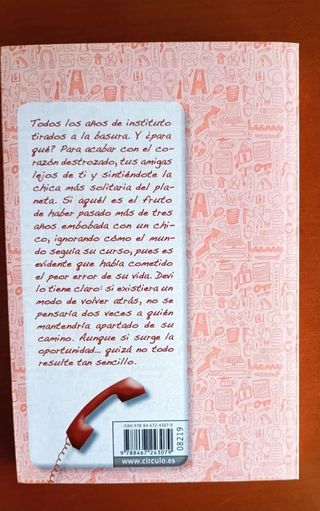 Todos los años de instituto
tirados a la basura. Y ¿para
qué? Para acabar con el co-
razón destrozado, tus amigas
lejos de ti y sintiéndote la
chica más solitaria del pla-
neta. Si aquél es el fruto
de haber pasado más de tres
años embobada con un chi-
co, ignorando cómo el mun-
do seguía su curso, pues es
evidente que había cometido
el peor error de su vida. Devi
lo tiene claro: si existiera un
modo de volver atrás, no se
pensaría dos veces a quién
mantendría apartado de su
camino. Aunque si surge la
oportunidad... quizá no todo
resulte tan sencillo.
ISBN 978-84-672-4307-9
9 788467 243079
08219
www.circulo.es